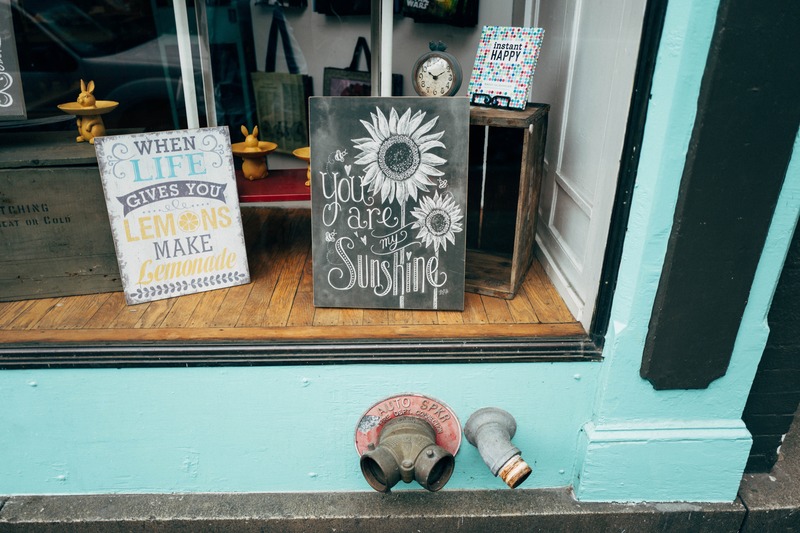 WHEN
LIFE
GIVES YOU
LEMONS
MAKE
Lemonade
You
are
my
Sunshine
instant
HAPPY
AUTO SPKR